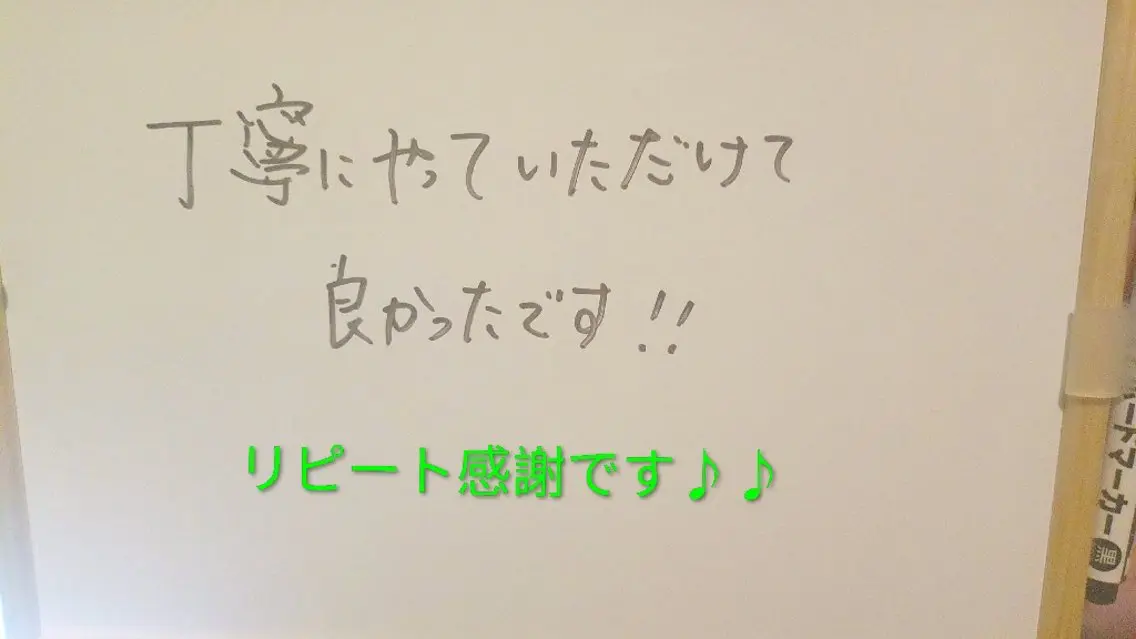 丁寧にやっていただけて
良かったです!!
リピート感謝です♪♪
ードマーカー 黒